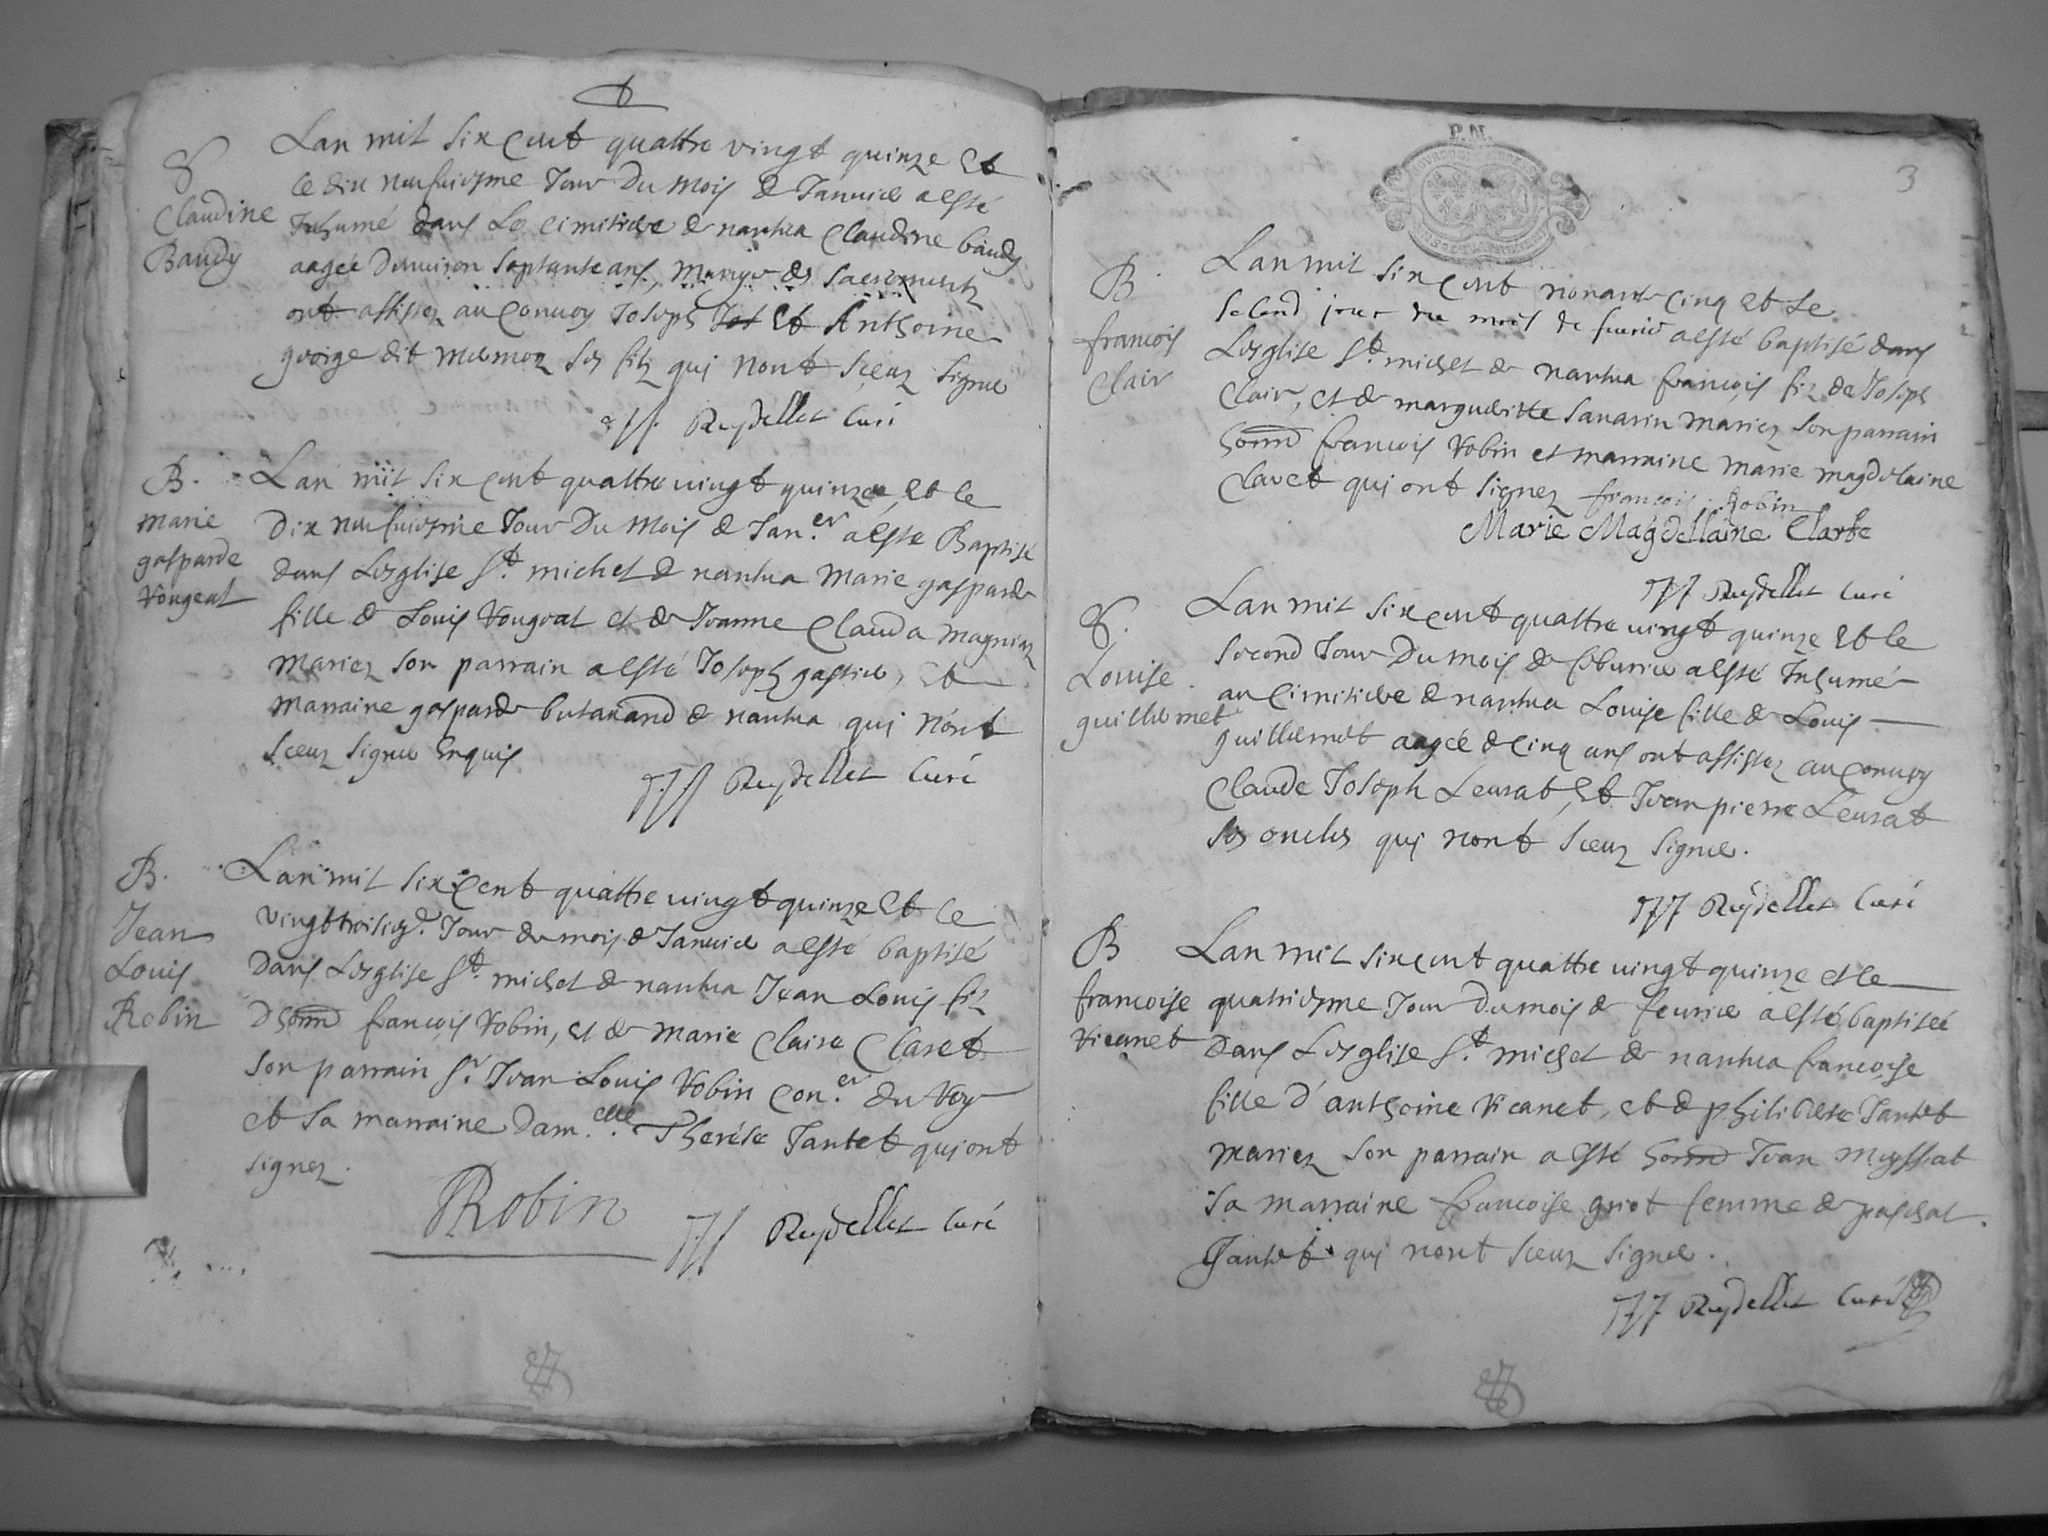 S
Claudine
Baudy
Lan mil six cent quattre vingt quinze Et
le dix neufuiesme Jour Du mois de Januier a esté
Inhumé dans Le cimitiere de nantua Claudine baudy
aagée denuiron septante ans, des sacrements
ont assistez au conuoy Joseph Et Anthoine
george dit ses filz qui nont sceuz signer
Reydellet Curé
B.
marie
gasparde
Vougeat
Lan mil six cent quattre vingt quinze, Et le
Dix neufuiesme Jour Du mois de Jan.er a esté Baptisé
dans Lesglise St. michel de nantua Marie gasparde
fille de Louis Vougeat et de Jeanne Clauda
mariez son parrain a esté Joseph gastier, Et
marraine gasparde butauand de nantua qui nont
sceuz signer Enquis
Reydellet Curé
B.
Jean
Louis
Robin
Lan mil six cent quattre vingt quinze Et le
vingt troisies. Jour du mois de Januier a esté baptisé
Dans Lesglise St. michel de nantua Jean Louis filz
Dhonn francois Robin, et de Marie Claire Claret
son parrain Sr. Jean Louis Robin Con.er du Roy
et sa marraine Dam.elle Therése Jantet qui ont
signez.
Robin
Reydellet Curé
3
B
francois
Clair
Lan mil six cent nonante cinq Et le
second jour du mois de feurier a esté baptisé dans
Lesglise St. michel de nantua francois filz de Joseph
Clair, et de margueritte sauarin mariez son parrain
honn francois Robin et marraine marie magdelaine
Claret qui ont signez francois Robin
Marie Magdellaine Claret
Reydellet Curé
S.
Louise
guillermet
Lan mil six cent quattre vingt quinze Et le
second Jour Du mois de feburier a esté Inhumé
au cimitiere de nantua Louise fille de Louis
guillermet aagée de cinq ans ont assistez au conuoy
Claude Joseph Leurat, Et Jean pierre Leurat
ses oncles qui nont sceuz signer.
Reydellet Curé
B
francoise
Vicanet
Lan mil six cent quattre vingt quinze et le
quatriesme Jour Du mois de feurier a esté baptisée
Dans Lesglise St. michel de nantua francoise
fille d'anthoine Vicanet, et de philiberte Jantet
mariez son parrain a esté honn Jean
sa marraine francoise griot femme de paschal
Jantet qui nont sceuz signer.
Reydellet Curé